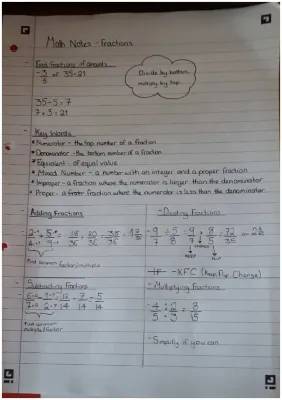 Math Notes - Fractions
- Find fractions of amounts
- 3/5 of 35=21
Divide by bottom,
multiply by top
35÷5=7
7×3=21
- Key Words
* Numerator - the top number of a fraction
* Denominator - the bottom number of a fraction
* Equivalent - of equal value
* Mixed Number - a number with an integer and a proper fraction
* Improper - a fraction where the numerator is larger than the denominator
* Proper - a fraction where the numerator is less than the denominator
- Adding Fractions
- Find common factor/multiple
- Dividing Fractions
- 9/7 ÷ 5/8 = 9/7 × 8/5 = 72/35
KEEP CHANGE FLIP
- KFC (Keep, Flip, Change)
- Subtracting Fractions
- Find common
multiple/factor
- Multiplying Fractions
- Simplify if you can